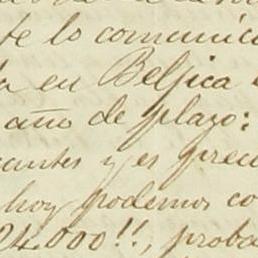 te lo comunic
en Belgica
año de plazo:
y es prec
hoy podemos co
000!!, proba